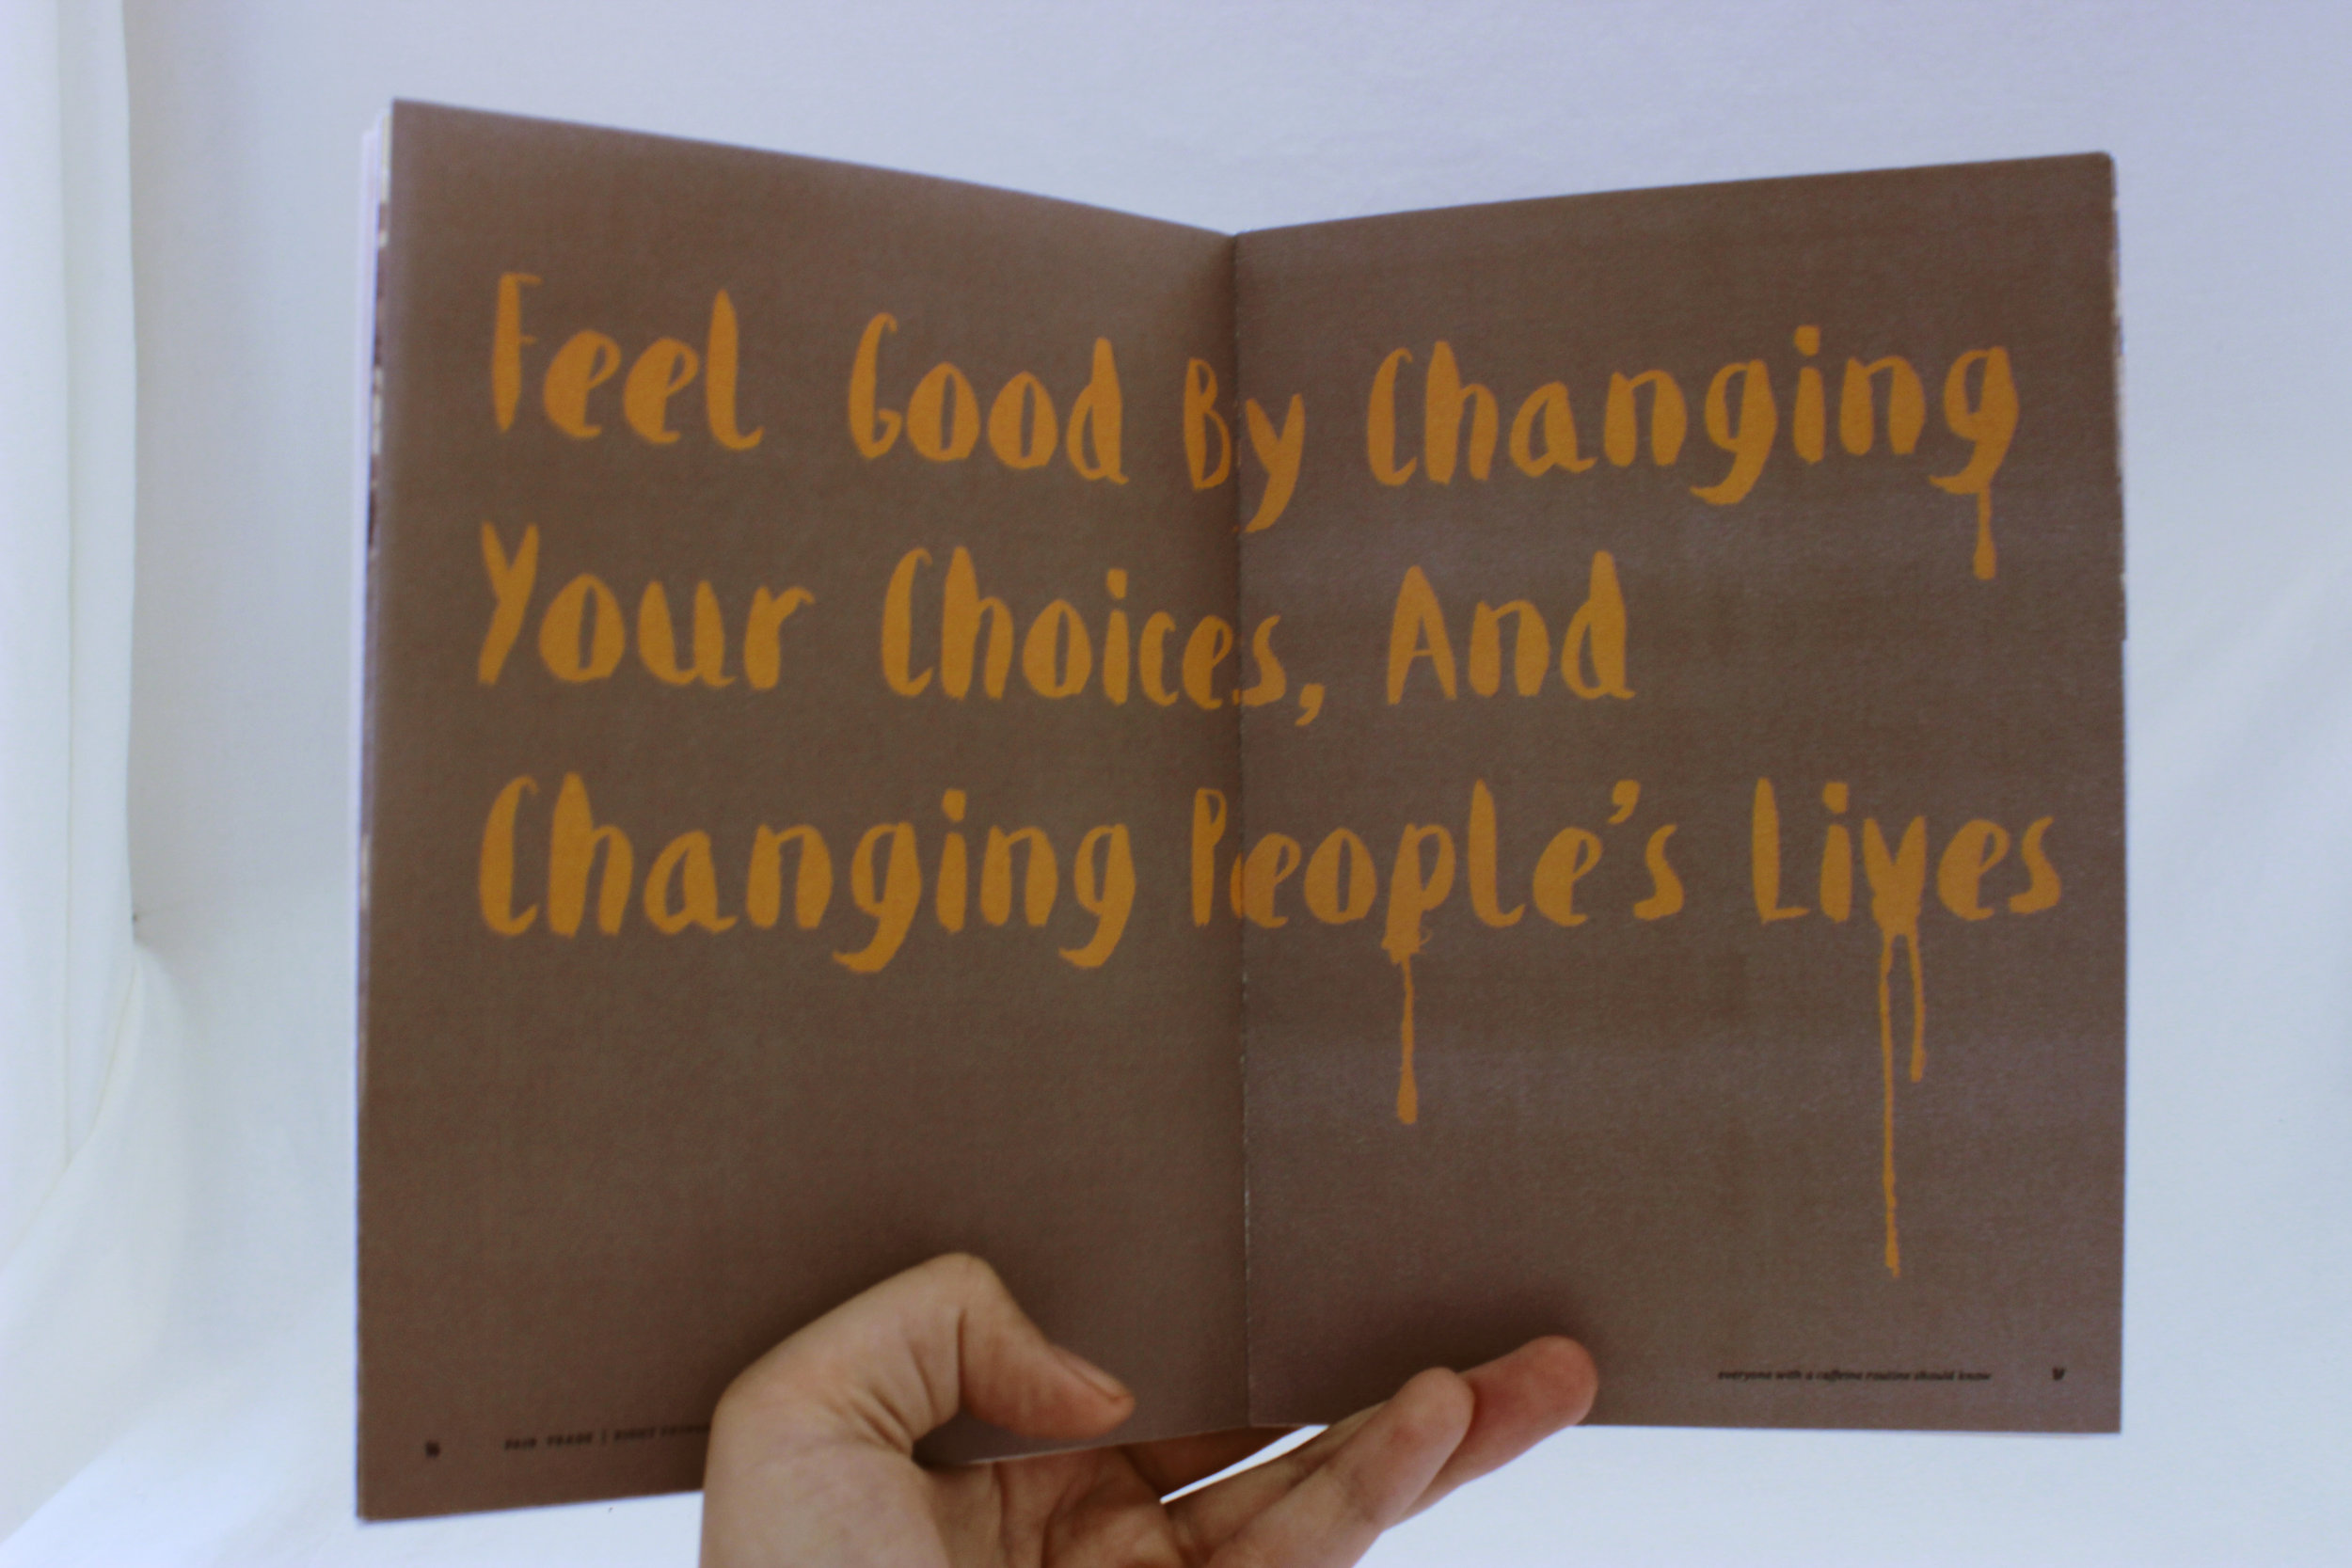 Feel Good By Changing
Your Choices, And
Changing People's Lives
16
FAIR TRADE |
everyone with a caffeine routine should know
17